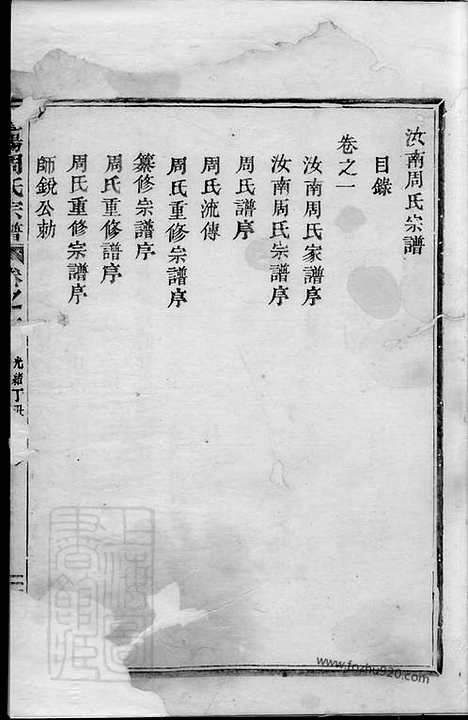 汝南周氏宗譜
目錄
卷之一
汝南周氏家譜序
汝南周氏宗譜序
周氏譜序
周氏流傳
周氏重修宗譜序
纂修宗譜序
周氏重修譜序
周氏重修宗譜序
師銳公勅
陽周氏宗譜
卷之一
光緒丁丑
www.fozhu920.com